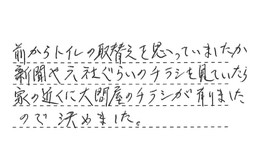 前からトイレの取替えを思っていましたが
新聞や元社ぐらいのチラシを見ていたら
家の近くに大問屋のチラシが有りました
ので決めました。